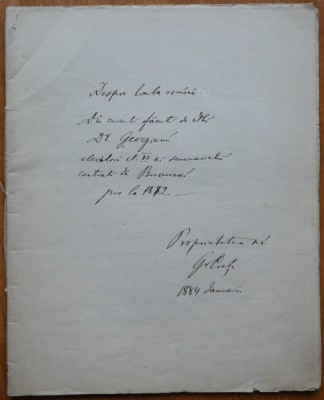 Despre limba română.
Din cursul făcut de
Dr Georgian
elevilor cl. VI ai seminarului
central din București
pre la 1882
Proprietatea mea
1884 Januarie